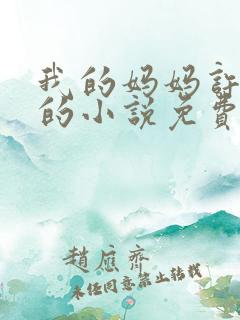 我的妈妈許
的小説免費
趙應齊
未经同意禁止转载